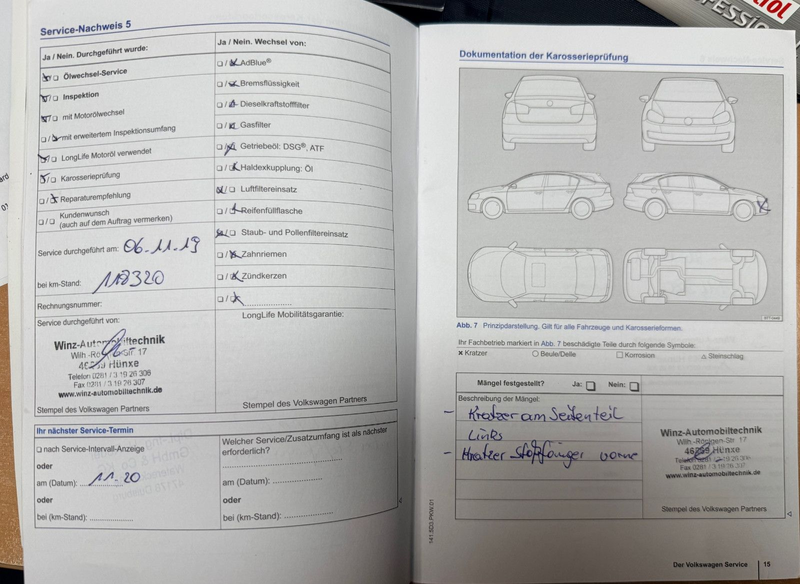 Service-Nachweis 5
Ja / Nein. Durchgeführt wurde:
Ölwechsel-Service
Inspektion
mit Motorölwechsel
mit erweitertem Inspektionsumfang
LongLife Motoröl verwendet
Karosserieprüfung
Reparaturempfehlung
Kundenwunsch
(auch auf dem Auftrag vermerken)
Service durchgeführt am: 06.11.19
bei km-Stand: 118320
Rechnungsnummer:
Service durchgeführt von:
Winz-Automobiltechnik
Wilh.-Röntgen-Str. 17
46569 Hünxe
Telefon 0281 / 3 19 26 306
Fax 0281 / 3 19 26 307
www.winz-automobiltechnik.de
Stempel des Volkswagen Partners
Ja / Nein. Wechsel von:
AdBlue®
Bremsflüssigkeit
Dieselkraftstofffilter
Gasfilter
Getriebeöl: DSG®, ATF
Haldexkupplung: Öl
Luftfiltereinsatz
Reifenfüllflasche
Staub- und Pollenfiltereinsatz
Zahnriemen
Zündkerzen
LongLife Mobilitätsgarantie:
Stempel des Volkswagen Partners
Ihr nächster Service-Termin
nach Service-Intervall-Anzeige
oder
am (Datum): 11.20
oder
bei (km-Stand):
Welcher Service/Zusatzumfang ist als nächster
erforderlich?
am (Datum):
oder
bei (km-Stand):
Dokumentation der Karosserieprüfung
Abb. 7 Prinzipdarstellung. Gilt für alle Fahrzeuge und Karosserieformen.
Ihr Fachbetrieb markiert in Abb. 7 beschädigte Teile durch folgende Symbole:
Kratzer Beule/Delle Korrosion Steinschlag
Mängel festgestellt? Ja: Nein:
Beschreibung der Mängel:
- Kratzer am Seitenteil
Links
- Kratzer Stoßfänger vorne
Winz-Automobiltechnik
Wilh.-Röntgen-Str. 17
Hünxe
Telefon 0281
Fax 0281 / 3 19 26 307
www.winz-automobiltechnik.de
Stempel des Volkswagen Partners
141.5D3.PKW.01
Der Volkswagen Service 15